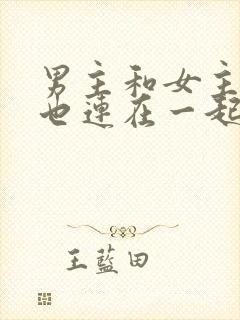 男主和女主
也连在一起
王蓝田